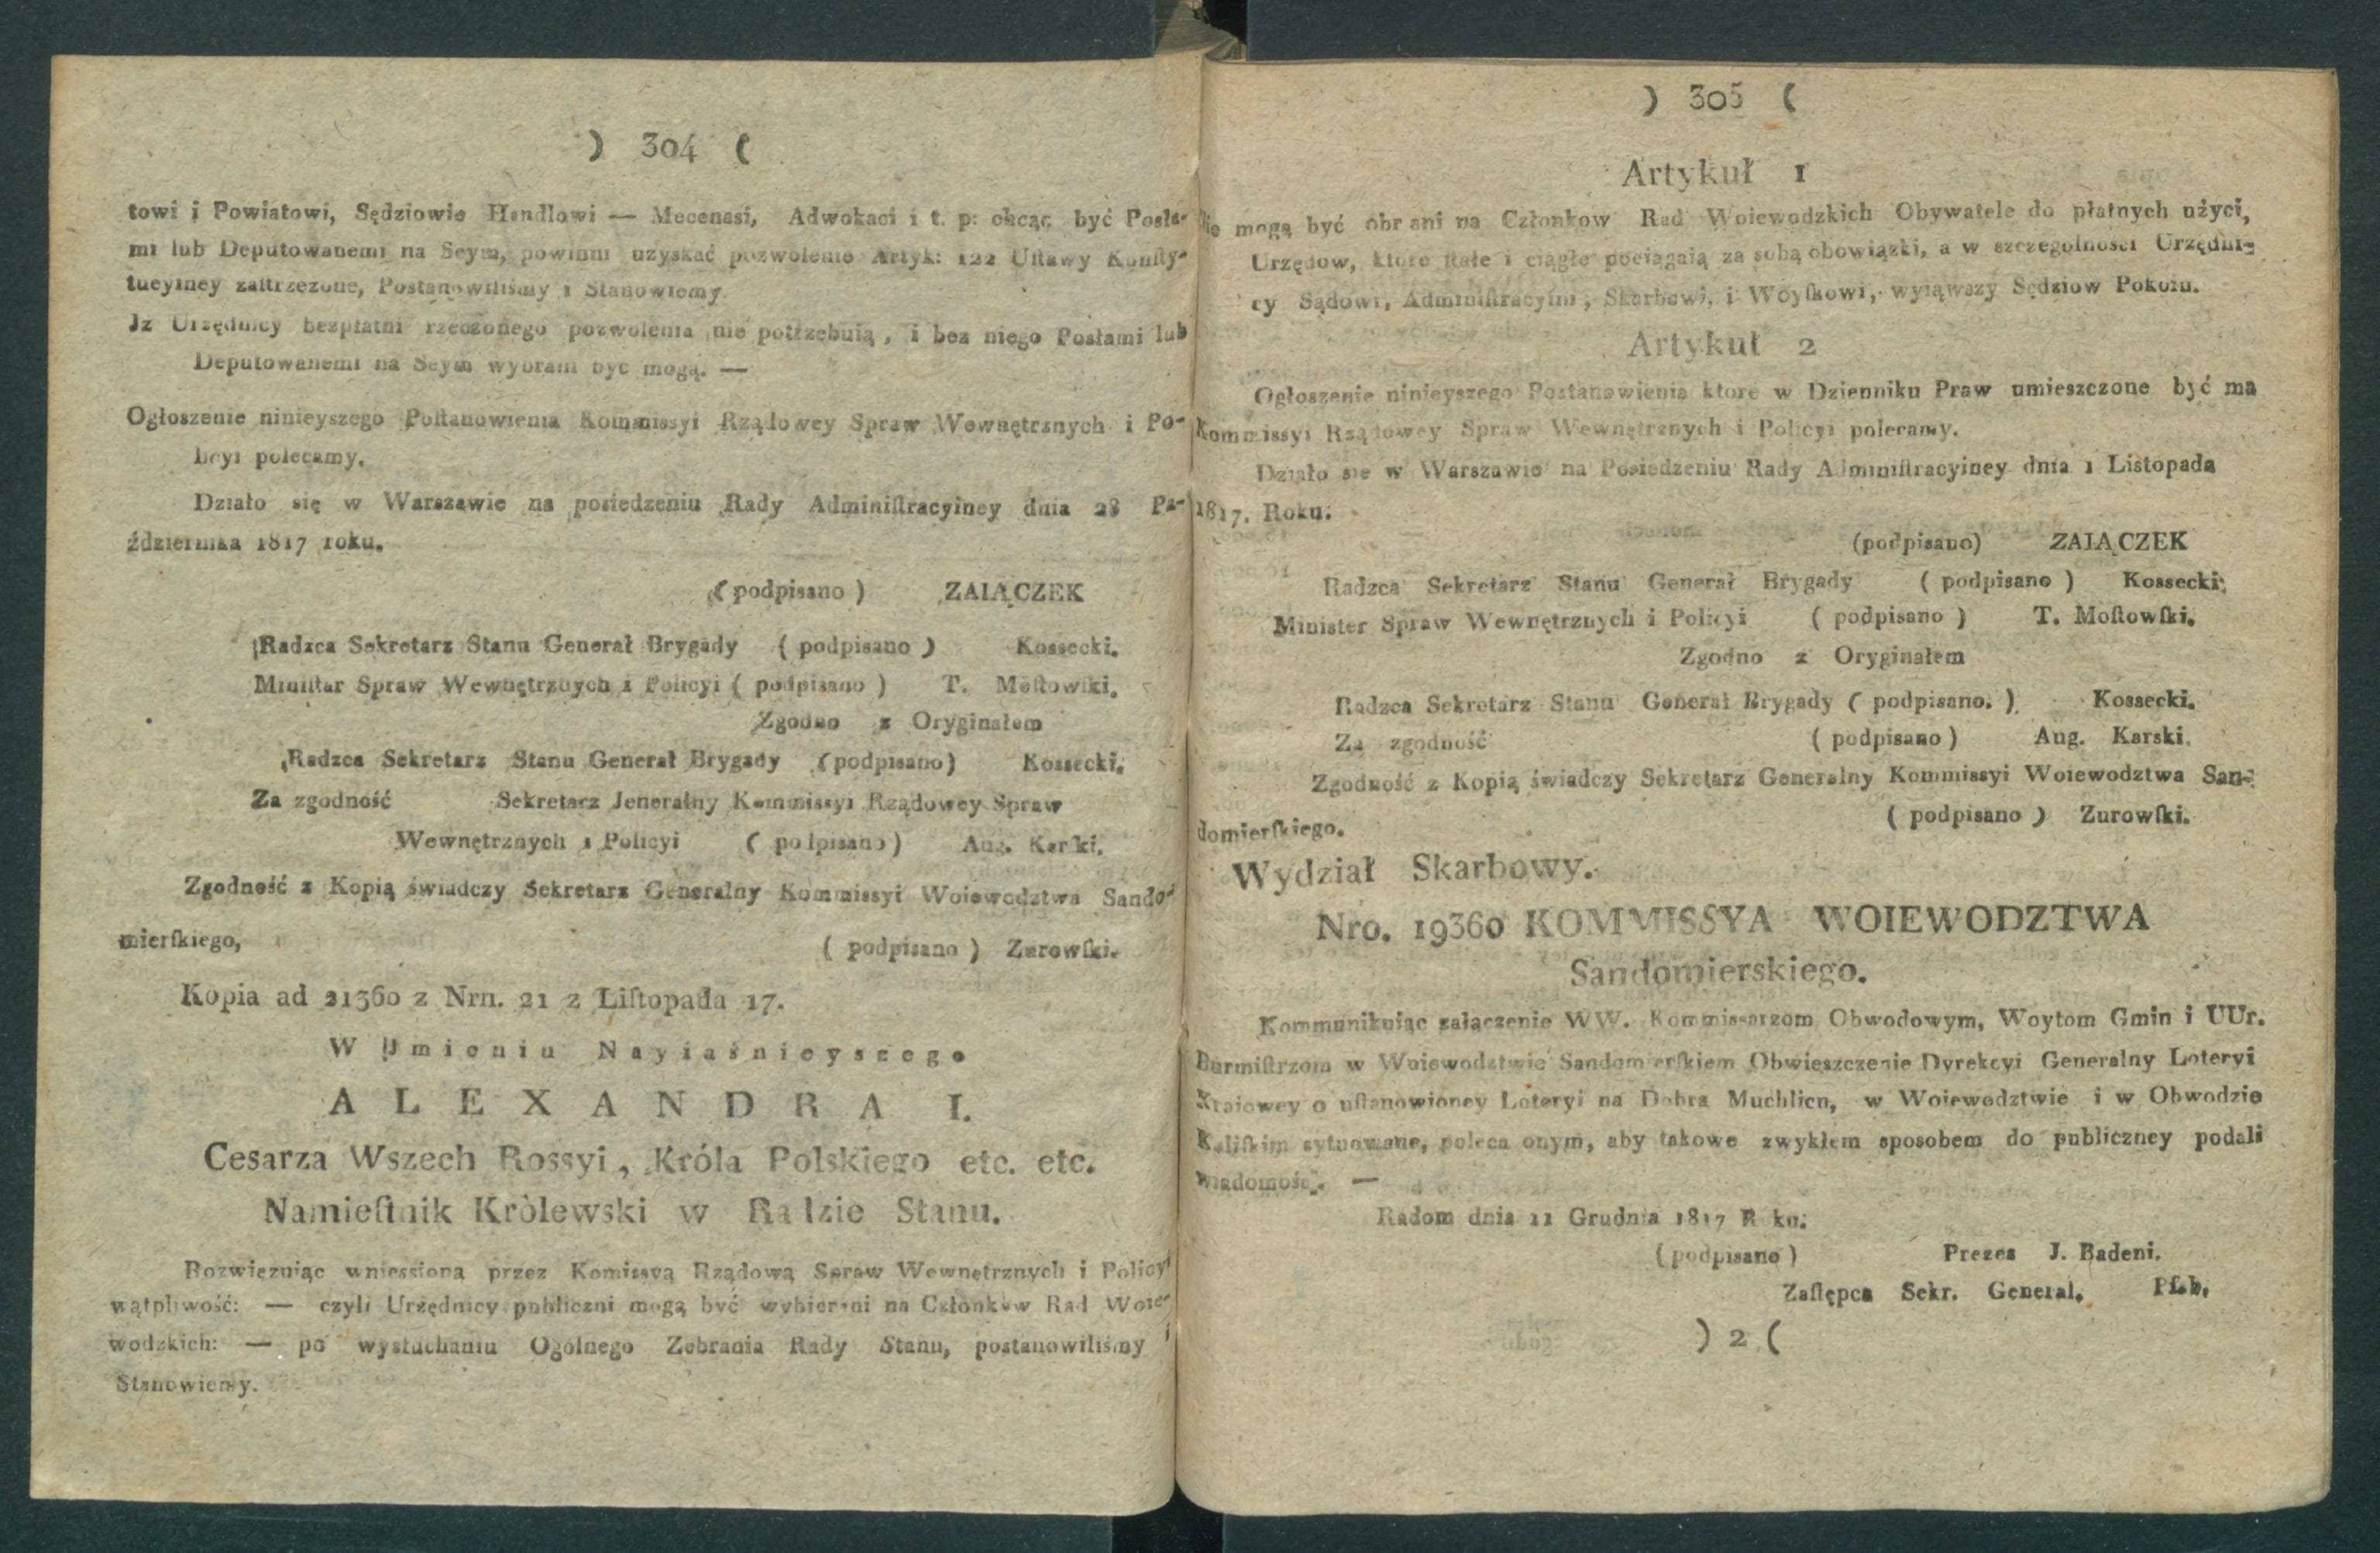 ) 304 (
towi i Powiatowi, Sędziowie Handlowi — Mecenasi, Adwokaci i t. p: chcąc być Posła-
mi lub Deputowanemi na Seym, powinni uzyskać pozwolenie Artyk: 122 Uſtawy Konſty-
tucyiney zaſtrzezone, Postanowiliśmy i Stanowiemy.
Jz Urzędnicy bezpłatni rzeczonego pozwolenia nie potrzebuią, i bez niego Posłami lub
Deputowanemi na Seym wybrani byc mogą. —
Ogłoszenie ninieyszego Poſtanowienia Kommissyi Rządowey Spraw Wewnętrznych i Po-
licyi polecamy.
Działo się w Warszawie na posiedzeniu Rady Adminiſtracyiney dnia 28 Pa-
ździernika 1817 roku.
( podpisano ) ZAIĄCZEK
Radzca Sekretarz Stanu Generał Brygady ( podpisano ) Kossecki.
Miniſtar Spraw Wewnętrznych i Policyi ( podpisano ) T. Moſtowſki.
Zgodno z Oryginałem
Radzca Sekretarz Stanu Generał Brygady ( podpisano) Kossecki.
Za zgodność Sekretarz Jeneralny Kommissyi Rządowey Spraw
Wewnętrznych i Policyi ( podpisano) Aug. Karſki.
Zgodność z Kopią świadczy Sekretarz Generalny Kommissyi Woiewodztwa Sando-
mierſkiego, ( podpisano ) Zurowſki.
Kopia ad 21360 z Nrn. 21 z Liſtopada 17.
W Jmieniu Nayiaśnieyszego
ALEXANDRA I.
Cesarza Wszech Rossyi, Króla Polskiego etc. etc.
Namieſtnik Kròlewski w Radzie Stanu.
Rozwięzuiąc wniessioną przez Komissyą Rządową Spraw Wewnętrznych i Policyi
wątpliwość: — czyli Urzędnicy publiczni mogą być wybierani na Członków Rad Woie-
wodzkich: — po wysłuchaniu Ogolnego Zebrania Rady Stanu, postanowiliśmy i
Stanowiemy.
) 305 (
Artykuł 1
Nie mogą być obrani na Członkow Rad Woiewodzkich Obywatele do płatnych użyci,
Urzędow, ktore ſtałe i ciągłe pociągaią za sobą obowiązki, a w szczegolności Urzędni-
cy Sądowi, Adminiſtracyini, Skarbowi, i Woyſkowi, wyiąwszy Sędziow Pokoiu.
Artykuł 2
Ogłoszenie ninieyszego Postanowienia ktore w Dzienniku Praw umieszczone być ma
Kommissyi Rządowey Spraw Wewnętrznych i Policyi polecamy.
Działo sie w Warszawie na Posiedzeniu Rady Adminiſtracyiney dnia 1 Listopada
1817. Roku.
(podpisano) ZAIĄCZEK
Radzca Sekretarz Stanu Generał Brygady ( podpisano ) Kossecki.
Minister Spraw Wewnętrznych i Policyi ( podpisano ) T. Moſtowſki.
Zgodno z Oryginałem
Radzca Sekretarz Stanu Generał Brygady ( podpisano. ) Kossecki.
Za zgodność ( podpisano ) Aug. Karski.
Zgodność z Kopią świadczy Sekretarz Generalny Kommissyi Woiewodztwa San-
domierſkiego. ( podpisano ) Zurowſki.
Wydział Skarbowy.
Nro. 19360 KOMMISSYA WOIEWODZTWA
Sandomierskiego.
Kommunikuiąc załączenie WW. Kommissarzom Obwodowym, Woytom Gmin i UUr.
Burmiſtrzom w Woiewodztwie Sandomierſkiem Obwieszczenie Dyrekcyi Generalny Loteryi
Kraiowey o uſtanowioney Loteryi na Dobra Muchlicn, w Woiewodztwie i w Obwodzie
Kaliſkim sytuowane, poleca onym, aby takowe zwykłem sposobem do publiczney podali
wiadomości. —
Radom dnia 11 Grudnia 1817 Roku.
( podpisano ) Prezes J. Badeni.
Zaſtępca Sekr. General.
) 2 (